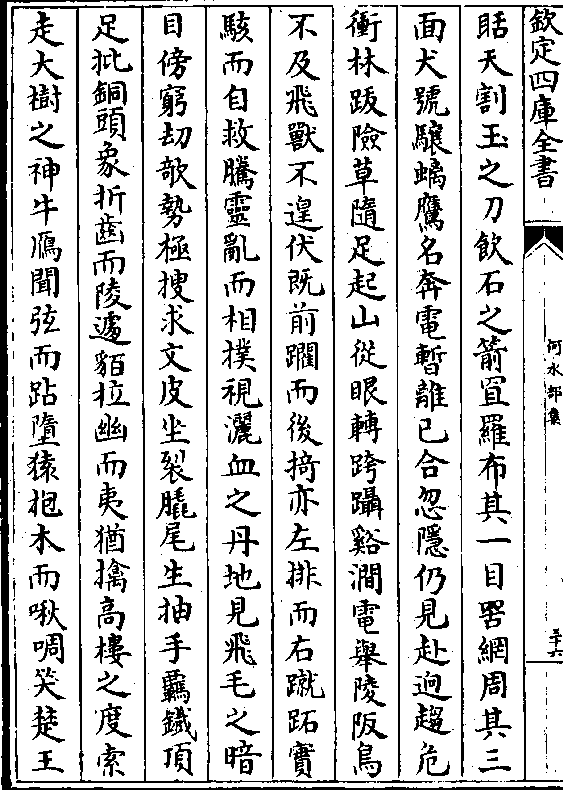 欽定四庫全書
何水部集
三十六
聒天割玉之刀飲石之箭罝羅布其一目罟網周其三
面犬號驤螭鷹名奔電暫離已合忽隱仍見赴迥趨危
衝林跋險草隨足起山從眼轉跨躡谿澗電舉陵阪鳥
不及飛獸不遑伏既前躩而後掎亦左排而右蹴跖實
駭而自救騰靈亂而相撲視灑血之丹地見飛毛之暗
目傍窮刧欹勢極搜求文皮坐裂膬尾生抽手羈鐡項
足批銅頭象折齒而陵遽貊拉幽而夷猶擒高樓之度索
走大樹之神牛鴈聞弦而跕墮猿抱木而啾啁笑楚王